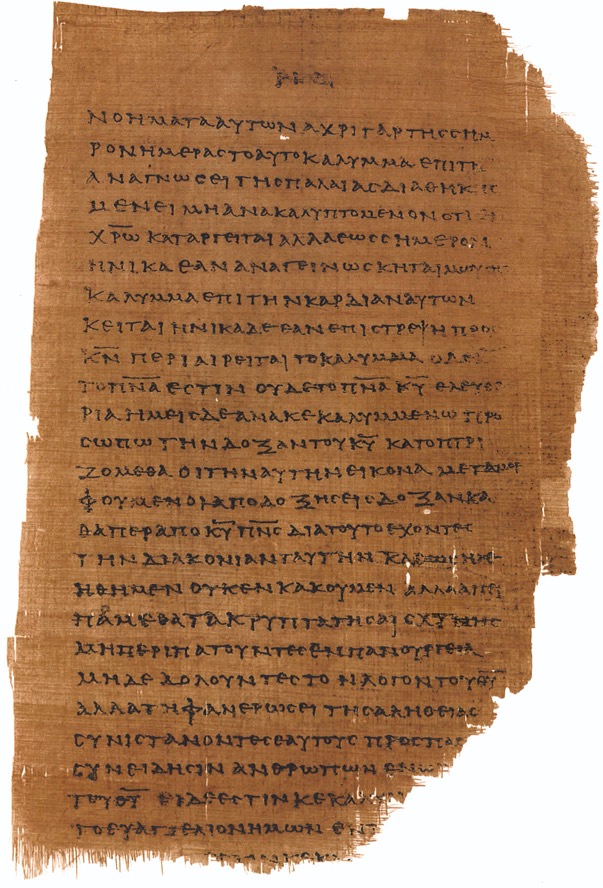 ΝΟΗΜΑΤΑΑΥΤΩΝΑΧΡΙΓΑΡΤΗϹϹΗΜ
ΡΟΝΗΜΕΡΑϹΤΟΑΥΤΟΚΑΛΥΜΜΑΕΠΙΤΗ
ΑΝΑΓΝΩϹΕΙΤΗϹΠΑΛΑΙΑϹΔΙΑΘΗΚ
ΜΕΝΕΙΜΗΑΝΑΚΑΛΥΠΤΟΜΕΝΟΝΟΤΙ
Χ̅Ρ̅Ω̅ΚΑΤΑΡΓΕΙΤΑΙΑΛΛΑΕΩϹϹΗΜΕΡΟΝ
ΗΝΙΚΑΕΑΝΑΝΑΓΕΙΝΩϹΚΗΤΑΙΜΩΥϹΗϹ
ΚΑΛΥΜΜΑΕΠΙΤΗΝΚΑΡΔΙΑΝΑΥΤΩΝ
ΚΕΙΤΑΙΗΝΙΚΑΔΕΕΑΝΕΠΙϹΤΡΕΨΗΠΡΟϹ
Κ̅Ν̅ΠΕΡΙΑΙΡΕΙΤΑΙΤΟΚΑΛΥΜΜΑΟΔΕ
ΤΟΠ̅Ν̅Α̅ΕϹΤΙΝΟΥΔΕΤΟΠ̅Ν̅Α̅Κ̅Υ̅ΕΛΕΥΘΕ
ΡΙΑΗΜΕΙϹΔΕΑΝΑΚΕΚΑΛΥΜΜΕΝΩΠΡΟ
ϹΩΠΩΤΗΝΔΟΞΑΝΤΟΥΚ̅Υ̅ΚΑΤΟΠΤΡΙ
ΖΟΜΕΘΑΟΙΤΗΝΑΥΤΗΝΕΙΚΟΝΑΜΕΤΑΜΟΡ
ΦΟΥΜΕΝΟΙΑΠΟΔΟΞΗϹΕΙϹΔΟΞΑΝΚΑ
ΘΑΠΕΡΑΠΟΚ̅Υ̅Π̅Ν̅Ϲ̅ΔΙΑΤΟΥΤΟΕΧΟΝΤΕϹ
ΤΗΝΔΙΑΚΟΝΙΑΝΤΑΥΤΗΝΚΑΘΩϹΗΛΕ
ΗΘΗΜΕΝΟΥΚΕΝΚΑΚΟΥΜΕΝΑΛΛΑΑΠΕΙ
ΠΑΜΕΘΑΤΑΚΡΥΠΤΑΤΗϹΑΙϹΧΥΝΗϹ
ΜΗΠΕΡΙΠΑΤΟΥΝΤΕϹΕΝΠΑΝΟΥΡΓΕΙΑ
ΜΗΔΕΔΟΛΟΥΝΤΕϹΤΟΝΛΟΓΟΝΤΟΥΘ̅Υ̅
ΑΛΛΑΤΗΦΑΝΕΡΩϹΕΙΤΗϹΑΛΗΘΕΙΑϹ
ϹΥΝΙϹΤΑΝΟΝΤΕϹΕΑΥΤΟΥϹΠΡΟϹΠΑϹ
ϹΥΝΕΙΔΗϹΙΝΑΝΘΡΩΠΩΝΕΝΩ
ΤΟΥΘ̅Υ̅ΕΙΔΕΕϹΤΙΝΚΕΚΑΛΥ
ΤΟΕΥΑΓΓΕΛΙΟΝΗΜΩΝΕΝ